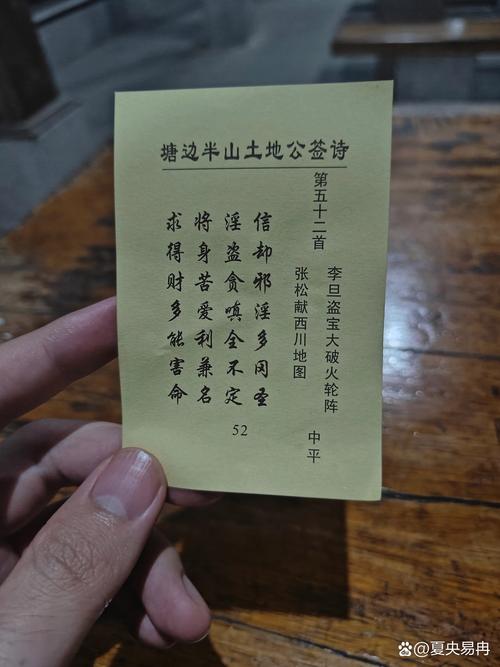 塘边半山土地公签诗
第五十二首
李旦盗宝大破火轮阵
中平
张松献西川地图
信却邪淫多冈圣
淫盗贪嗔全不定
将身苦爱利兼名
求得财多能害命
52
@夏央易冉